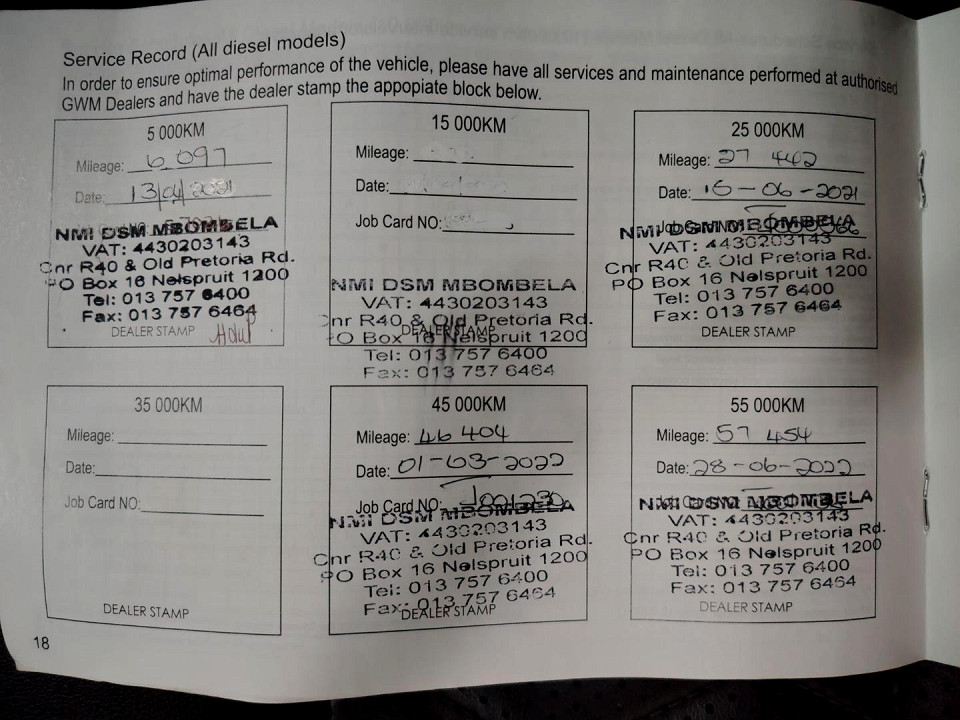 Service Record (All diesel models)
In order to ensure optimal performance of the vehicle, please have all services and maintenance performed at authorised
GWM Dealers and have the dealer stamp the appopiate block below.
5 000KM
Mileage: 6 097
Date: 13/04/2021
NMI DSM MBOMBELA
VAT: 4430203143
Cnr R40 & Old Pretoria Rd.
PO Box 16 Nelspruit 1200
Tel: 013 757 6400
Fax: 013 757 6464
DEALER STAMP
15 000KM
Mileage:
Date:
Job Card NO:
NMI DSM MBOMBELA
VAT: 4430203143
Cnr R40 & Old Pretoria Rd.
DEALER STAMP
PO Box 16 Nelspruit 1200
Tel: 013 757 6400
Fax: 013 757 6464
25 000KM
Mileage: 27 442
Date: 15-06-2021
NMI DSM MBOMBELA
VAT: 4430203143
Cnr R40 & Old Pretoria Rd.
PO Box 16 Nelspruit 1200
Tel: 013 757 6400
Fax: 013 757 6464
DEALER STAMP
35 000KM
Mileage:
Date:
Job Card NO:
DEALER STAMP
45 000KM
Mileage: 46 404
Date: 01-03-2022
Job Card NO:
NMI DSM MBOMBELA
VAT: 4430203143
Cnr R40 & Old Pretoria Rd.
PO Box 16 Nelspruit 1200
Tel: 013 757 6400
Fax: 013 757 6464
DEALER STAMP
55 000KM
Mileage: 57 454
Date: 28-06-2022
NMI DSM MBOMBELA
VAT: 4430203143
Cnr R40 & Old Pretoria Rd.
PO Box 16 Nelspruit 1200
Tel: 013 757 6400
Fax: 013 757 6464
DEALER STAMP
18